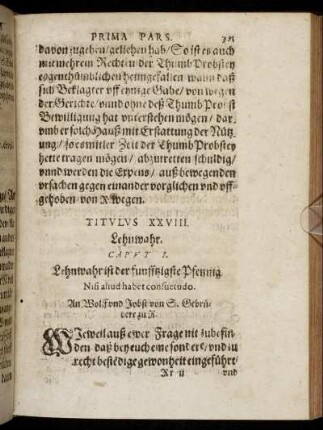 PRIMA PARS.
davon zugeben / geliehen hab / So ist es auch
mit mehrem Rechten der Thumb Probstey
eygenthümblichen heimgefallen wann daß
sich Beklagter auff einige Gabe / von wegen
der Gerichte / unnd ohne deß Thumb Probst
Bewilligung hat unterstehen mögen / dar-
umb er solchs auß mit Erstattung der Nütz
ung / so es mitler Zeit der Thumb Probstey
hette tragen mögen / abzutretten schuldig /
unnd werden die Expens / auß bewegenden
ursachen gegen einander verglichen und uff-
gehoben / von R. wegen.
TITVLVS XXVIII.
Lehnwahr.
CAPVT I.
Lehnwahr ist der funfftzigste Pfennig
Nisi aliud habet consuetudo.
An Wolff und Jobst von S. Gebrü-
dere zu R.
WJeweil auß ewer Frage nit zubefin-
den daß bey euch eine sondere / und zu
recht bestedige gewonheit eingeführt /
Rr ij
und